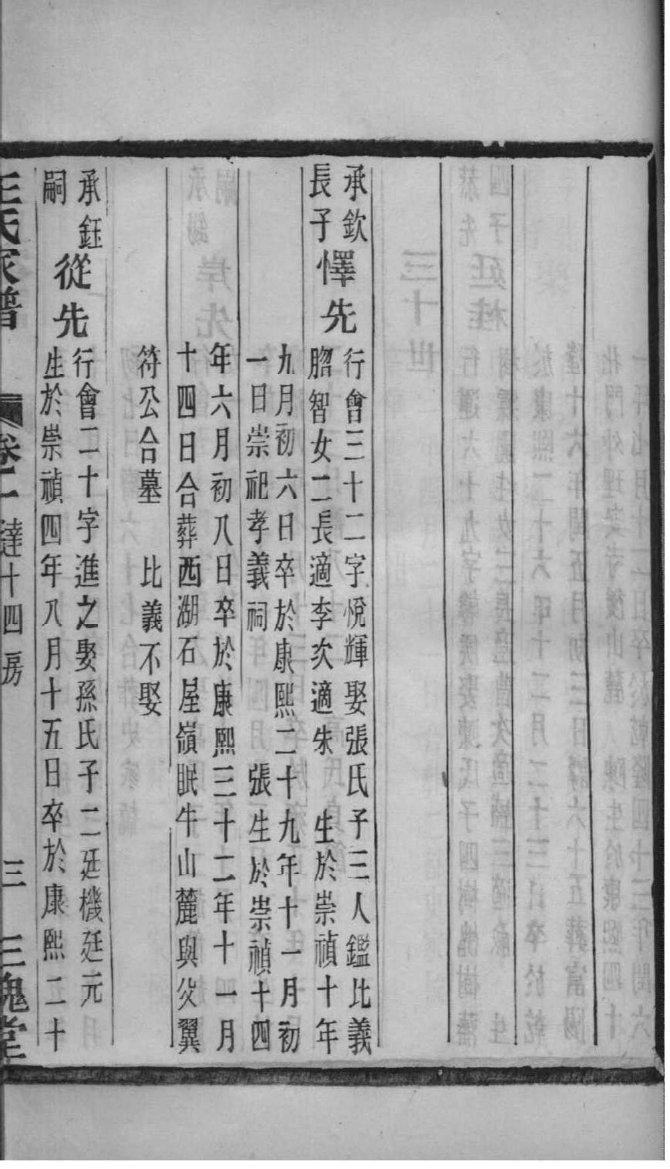 承欽
長子
懌先
行會三十二字悅輝娶張氏子三人鑑比義
膃智女二長適李次適朱　生於崇禎十年
九月初六日卒於康熙二十九年十一月初
一日崇祀孝義祠　張生於崇禎十四
年六月初八日卒於康熙三十二年十一月
十四日合葬西湖石屋嶺眠牛山麓與父翼
符公合墓　比義不娶
承鈺
嗣
從先
行會二十字進之娶孫氏子二廷機廷元
生於崇禎四年八月十五日卒於康熙二十
王氏家譜　卷二　達十四房　三　三槐堂